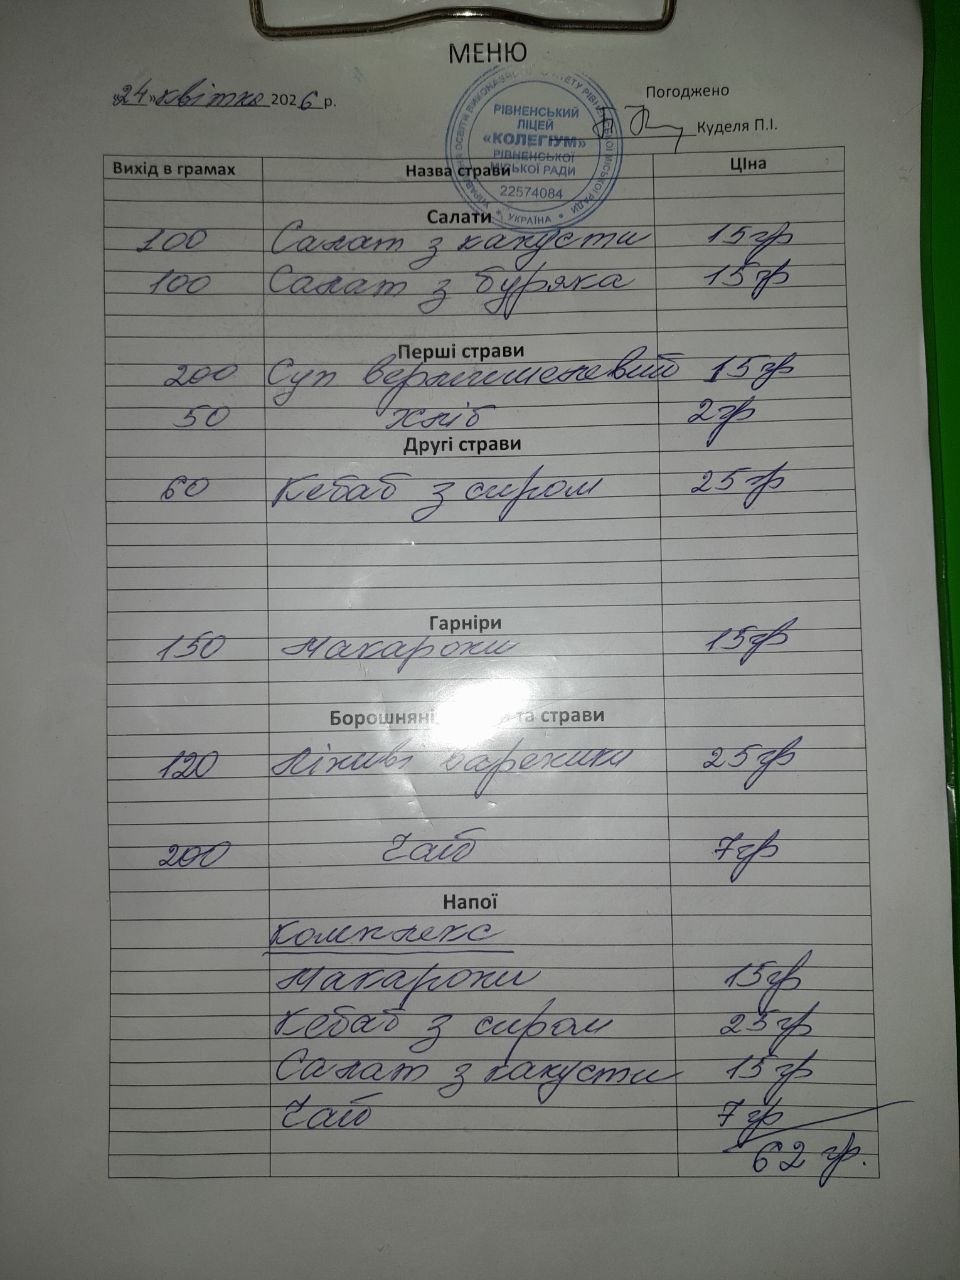 МЕНЮ
«24» квітня 2026 р.
Погоджено
Куделя П.І.
РІВНЕНСЬКИЙ
ЛІЦЕЙ
«КОЛЕГІУМ»
РІВНЕНСЬКОЇ
МІСЬКОЇ РАДИ
22574084
УКРАЇНА
Вихід в грамах Назва страви Ціна
Салати
100 Салат з капусти 15гр
100 Салат з буряка 15гр
Перші страви
200 Суп вермишелевий 15гр
50 Хліб 2гр
Другі страви
60 Кебаб з сиром 25гр
Гарніри
150 Макарони 15гр
Борошняні та страви
120 Ліниві вареники 25гр
200 Чай 7гр
Напої
Комплекс
Макарони 15гр
Кебаб з сиром 25гр
Салат з капусти 15гр
Чай 7гр
62 гр.